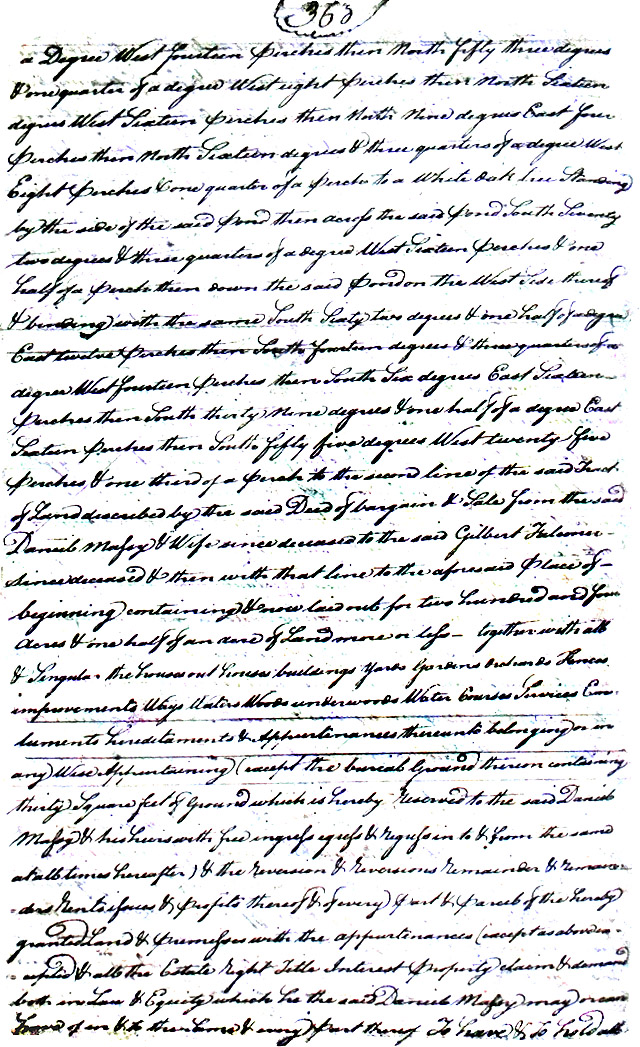 363
a Degree West fourteen Perches then North fifty three degrees
& one quarter of a degree West eight Perches then North Sixteen
degrees West Sixteen Perches then North Nine degrees East four
Perches then North Sixteen degrees & three quarters of a degree West
Eight Perches & one quarter of a Perch to a White Oak tree Standing
by the side of the said Pond then across the said Pond South Seventy
two degrees & three quarters of a degree West Sixteen Perches & one
half of a Perch then down the said Pond on the West Side thereof
& binding with the same South Sixty two degrees & one half of a degree
East twelve Perches then South fourteen degrees & three quarters of a
degree West fourteen Perches then South Six degrees East Sixteen
Perches then South thirty Nine degrees & one half of a degree East
Sixteen Perches then South fifty five degrees West twenty five
Perches & one third of a Perch to the second line of the said Tract
of Land described by the said Deed of bargain & Sale from the said
Daniel Massy & Wife since deceased to the said Gilbert Falconer
since deceased & then with that line to the aforesaid Place of
beginning containing & now laid out for two hundred and four
Acres & one half of an acre of Land more or less together with all
& Singular the houses out houses buildings Yards Gardens Orchards Fences
improvements Ways Waters Woods underwoods Water Courses Services Emo
luments hereditaments & Appurtenances thereunto belonging or in
any Wise Appertaining (except the burial Ground thereon containing
thirty Square feet of Ground which is hereby Reserved to the said Daniel
Massy & his heirs with free ingress egress & regress in to & from the same
at all times hereafter) & the Reversion & Reversions Remainder & Remain-
-ders Rents issues & Profits thereof & of every Part & Parcel of the hereby
granted Land & Premesses with the appurtinances (except as above ex-
-cepted & all the Estate Right Title Interest Property claim & demand
both in Law & Equity which he the said Daniel Massy may or can
have of in & to the same & every Part thereof To have & To hold all